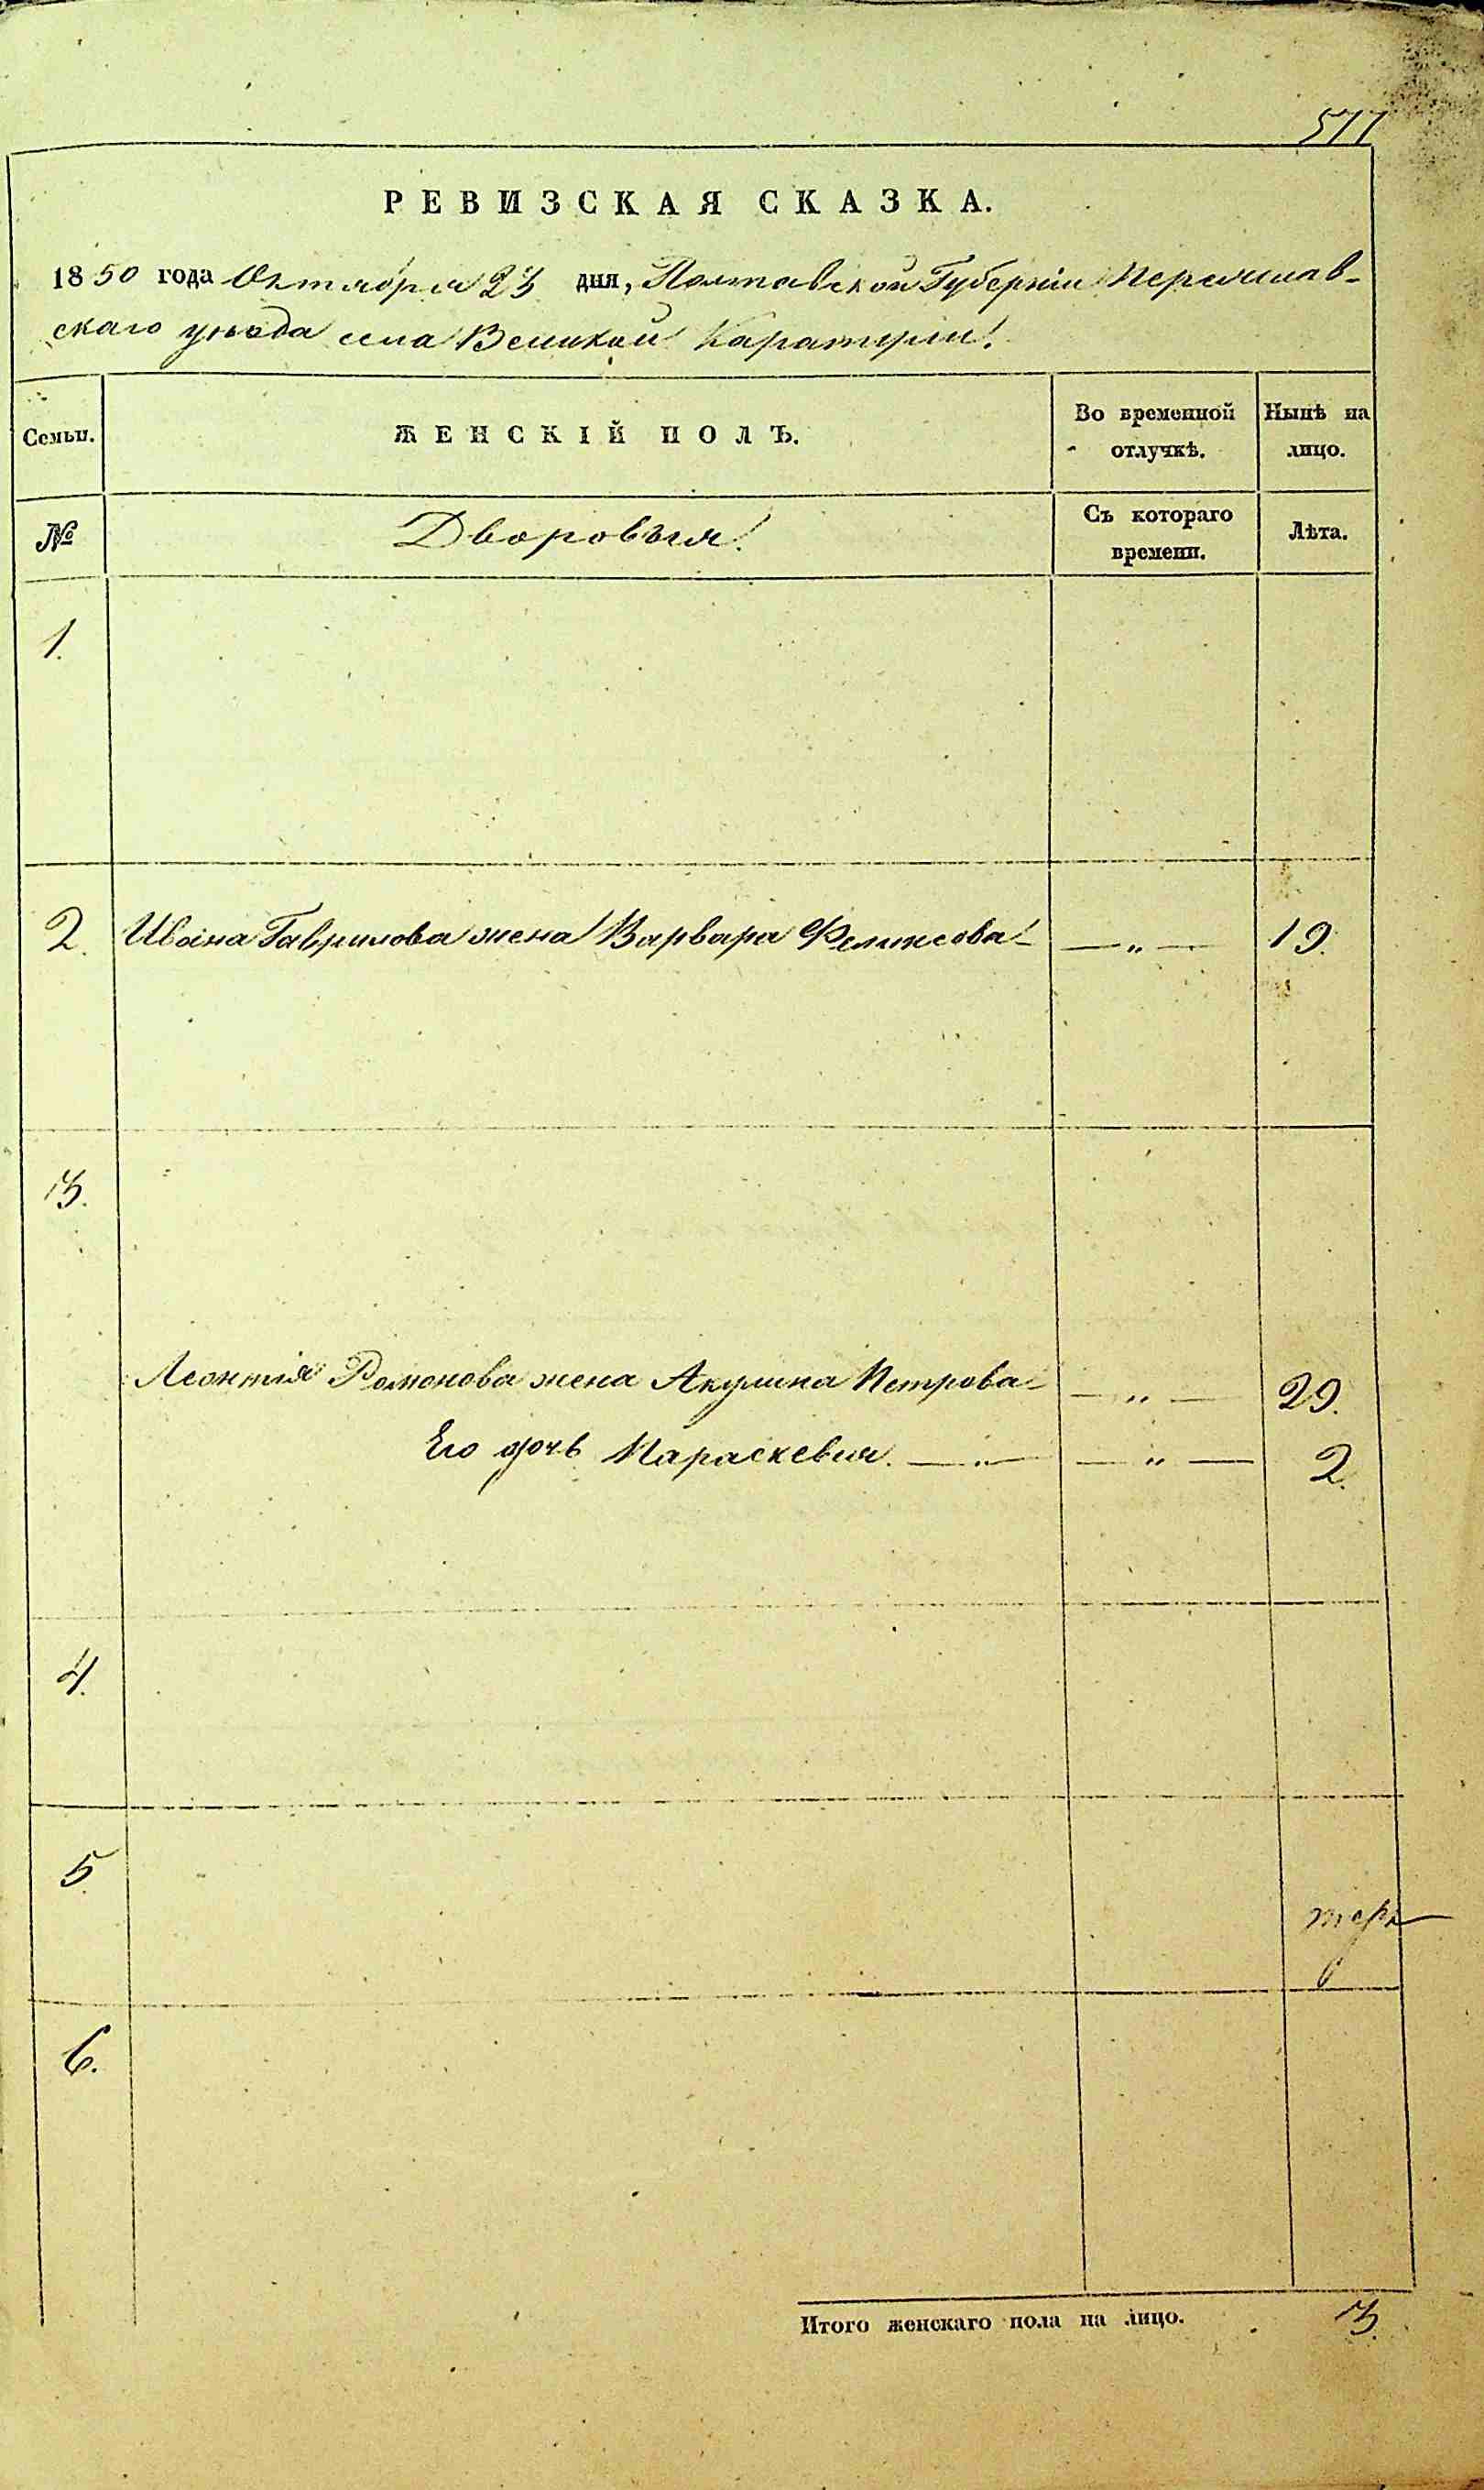 577
РЕВИЗСКАЯ СКАЗКА.
1850 года Октября 23 дня, Полтавской Губерніи Переяслав-
скаго уѣзда села Великой Каратули.
Семьи. ЖЕНСКІЙ ПОЛЪ. Во временной отлучкѣ. Нынѣ на лицо.
№ Дворовыя. Съ котораго времени. Лѣта.
1.
2. Ивана Гаврилова жена Варвара Феликсова — „ — 19.
3.
Леонтія Романова жена Акулина Петрова — „ — 29.
Его дочь Параскевия. — „ — — „ — 2.
4.
5.
6.
Итого женскаго пола на лицо. 3.